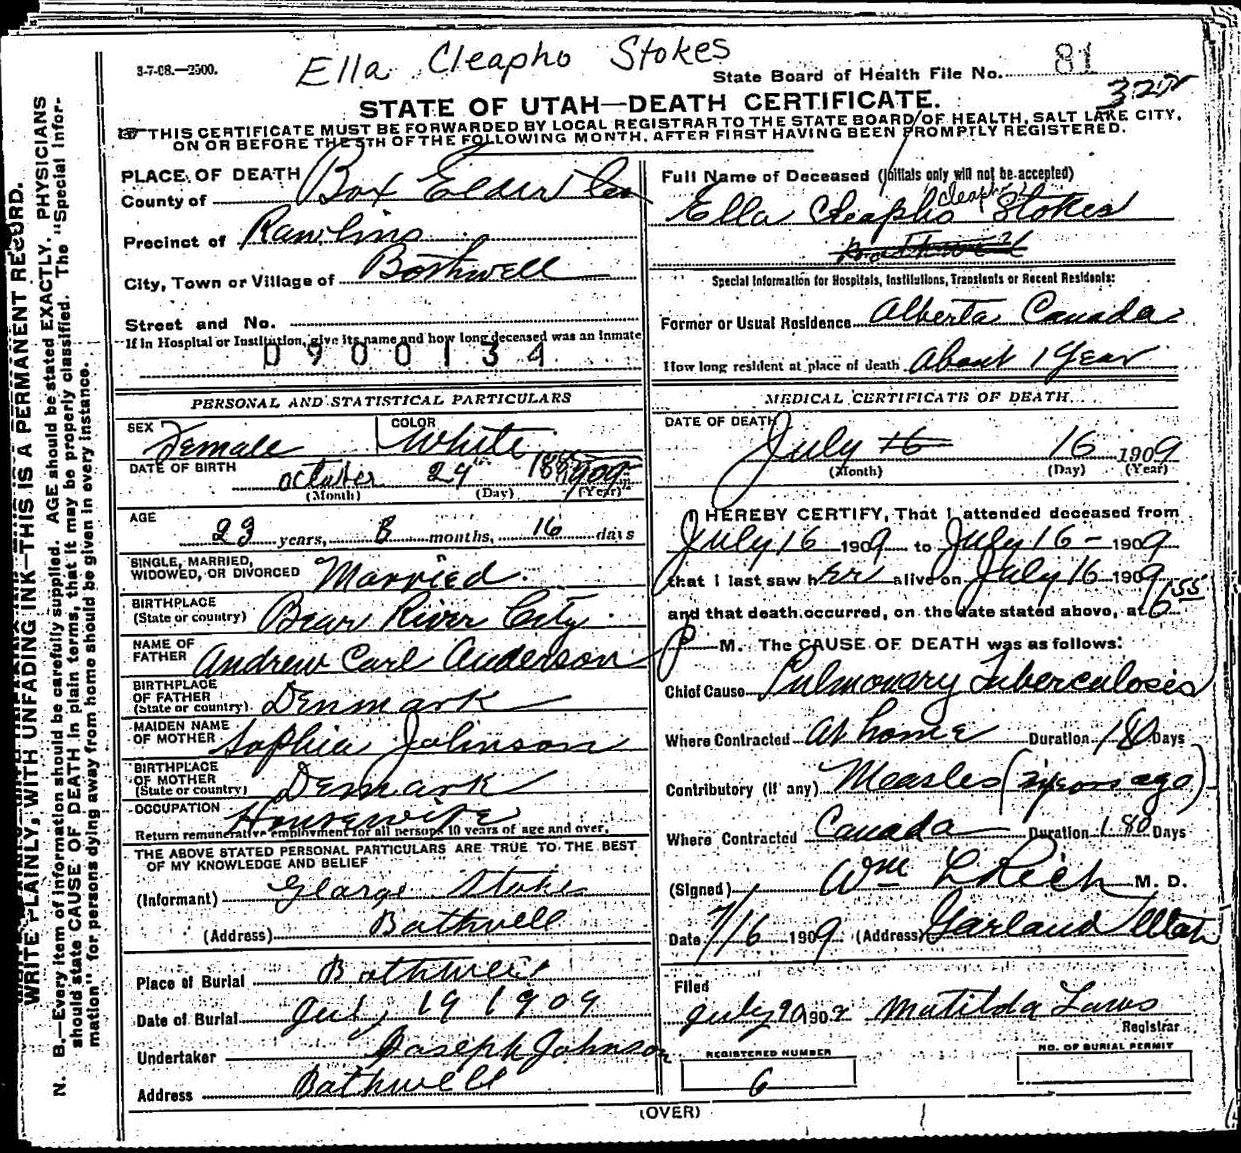 3-7-08.—2500.
Ella Cleapho Stokes
State Board of Health File No. 81
STATE OF UTAH—DEATH CERTIFICATE.
THIS CERTIFICATE MUST BE FORWARDED BY LOCAL REGISTRAR TO THE STATE BOARD OF HEALTH, SALT LAKE CITY,
ON OR BEFORE THE 5TH OF THE FOLLOWING MONTH, AFTER FIRST HAVING BEEN PROMPTLY REGISTERED.
WRITE PLAINLY, WITH UNFADING INK—THIS IS A PERMANENT RECORD.
N. B.—Every item of information should be carefully supplied. AGE should be stated EXACTLY. PHYSICIANS
should state CAUSE OF DEATH in plain terms, that it may be properly classified. The "Special Infor-
mation" for persons dying away from home should be given in every instance.
PLACE OF DEATH
County of Box Elder Co
Precinct of Rawlins
City, Town or Village of Bothwell
Street and No.
If in Hospital or Institution, give its name and how long deceased was an inmate
0900134
PERSONAL AND STATISTICAL PARTICULARS
SEX Female COLOR White
DATE OF BIRTH October 29th
(Month) (Day) (Year)
AGE 23 years, 8 months, 16 days
SINGLE, MARRIED,
WIDOWED, OR DIVORCED Married
BIRTHPLACE
(State or country) Bear River City
NAME OF
FATHER Andrew Carl Anderson
BIRTHPLACE
OF FATHER
(State or country) Denmark
MAIDEN NAME
OF MOTHER Sophia Johnson
BIRTHPLACE
OF MOTHER
(State or country) Denmark
OCCUPATION Housewife
Return remunerative employment for all persons 10 years of age and over.
THE ABOVE STATED PERSONAL PARTICULARS ARE TRUE TO THE BEST
OF MY KNOWLEDGE AND BELIEF
(Informant) George Stokes
(Address) Bothwell
Place of Burial Bothwell
Date of Burial July 19 1909
Undertaker Joseph Johnson
Address Bothwell
Full Name of Deceased (Initials only will not be accepted)
Cleapho
Ella Cleapho Stokes
Special Information for Hospitals, Institutions, Transients or Recent Residents:
Former or Usual Residence Alberta Canada
How long resident at place of death About 1 Year
MEDICAL CERTIFICATE OF DEATH
DATE OF DEATH
July 16 16 1909
(Month) (Day) (Year)
I HEREBY CERTIFY, That I attended deceased from
July 16 1909 to July 16 - 1909
that I last saw her alive on July 16 1909
and that death occurred, on the date stated above, at 6 55
P M. The CAUSE OF DEATH was as follows:
Chief Cause Pulmonary Tuberculosis
Where Contracted At home Duration 180 Days
Contributory (if any) Measles ( years ago)
Where Contracted Canada Duration 180 Days
(Signed) Wm L Rich M. D.
Date 7/16 1909 (Address) Garland Utah
Filed
July 20 190 Matilda Laws
Registrar
REGISTERED NUMBER
6
NO. OF BURIAL PERMIT
(OVER)